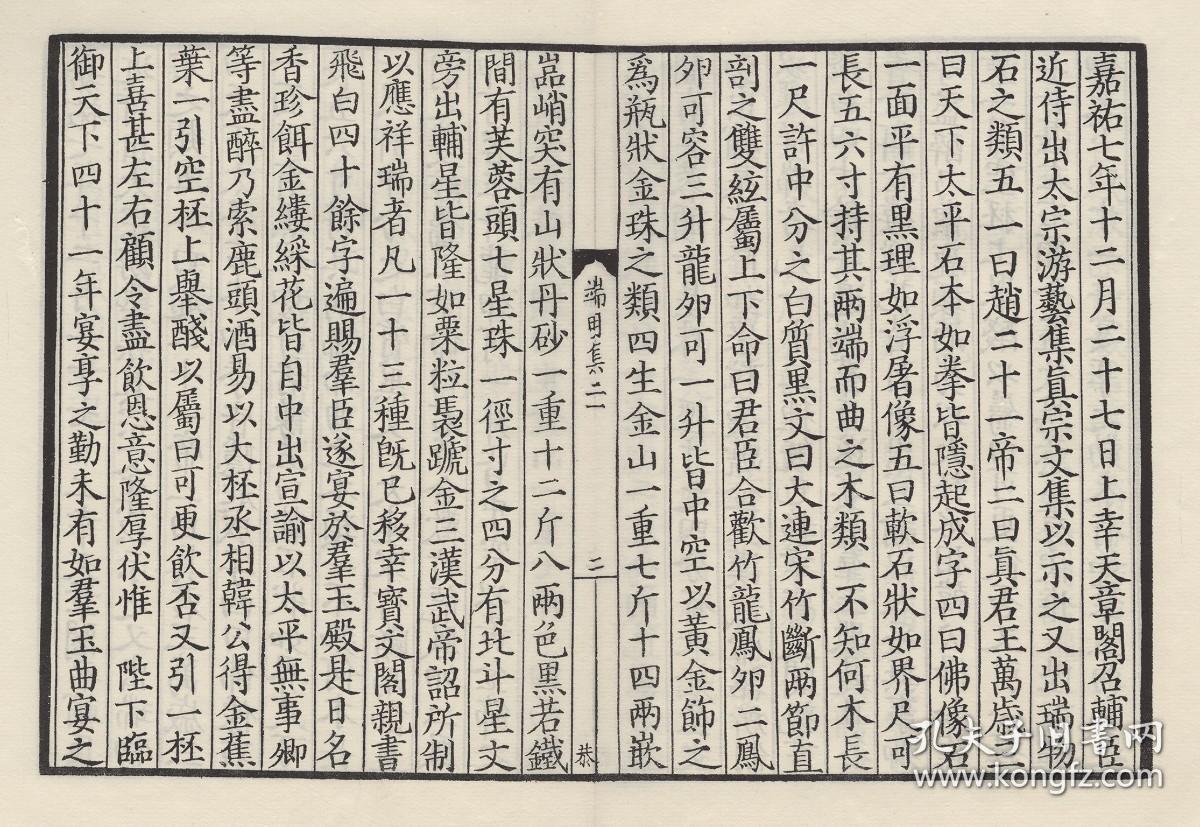 嘉祐七年十二月二十七日上幸天章閣召輔臣
近侍出太宗游藝集眞宗文集以示之又出瑞物
石之類五一曰趙二十一帝二曰眞君王萬歲三
曰天下太平石本如拳皆隱起成字四曰佛像石
一面平有黑理如浮屠像五曰軟石狀如界尺可
長五六寸持其兩端而曲之木類一不知何木長
一尺許中分之白質黑文曰大連宋竹斷兩節直
剖之雙絃屬上下命曰君臣合歡竹龍鳳卵二鳳
卵可容三升龍卵可一升皆中空以黃金飾之
爲瓶狀金珠之類四生金山一重七斤十四兩嵌
端明集二
二
恭
嵓峭突有山狀丹砂一重十二斤八兩色黑若鐵
間有芙蓉頭七星珠一徑寸之四分有北斗星文
旁出輔星皆隆如粟粒褭蹏金三漢武帝詔所制
以應祥瑞者凡一十三種旣已移幸寶文閣親書
飛白四十餘字遍賜羣臣遂宴於羣玉殿是日名
香珍餌金縷綵花皆自中出宣諭以太平無事卿
等盡醉乃索鹿頭酒易以大柸丞相韓公得金蕉
葉一引空柸上舉醆以屬曰可更飲否又引一柸
上喜甚左右顧令盡飲恩意隆厚伏惟 陛下臨
御天下四十一年宴享之勤未有如羣玉曲宴之
孔夫子旧书网
www.kongfz.com